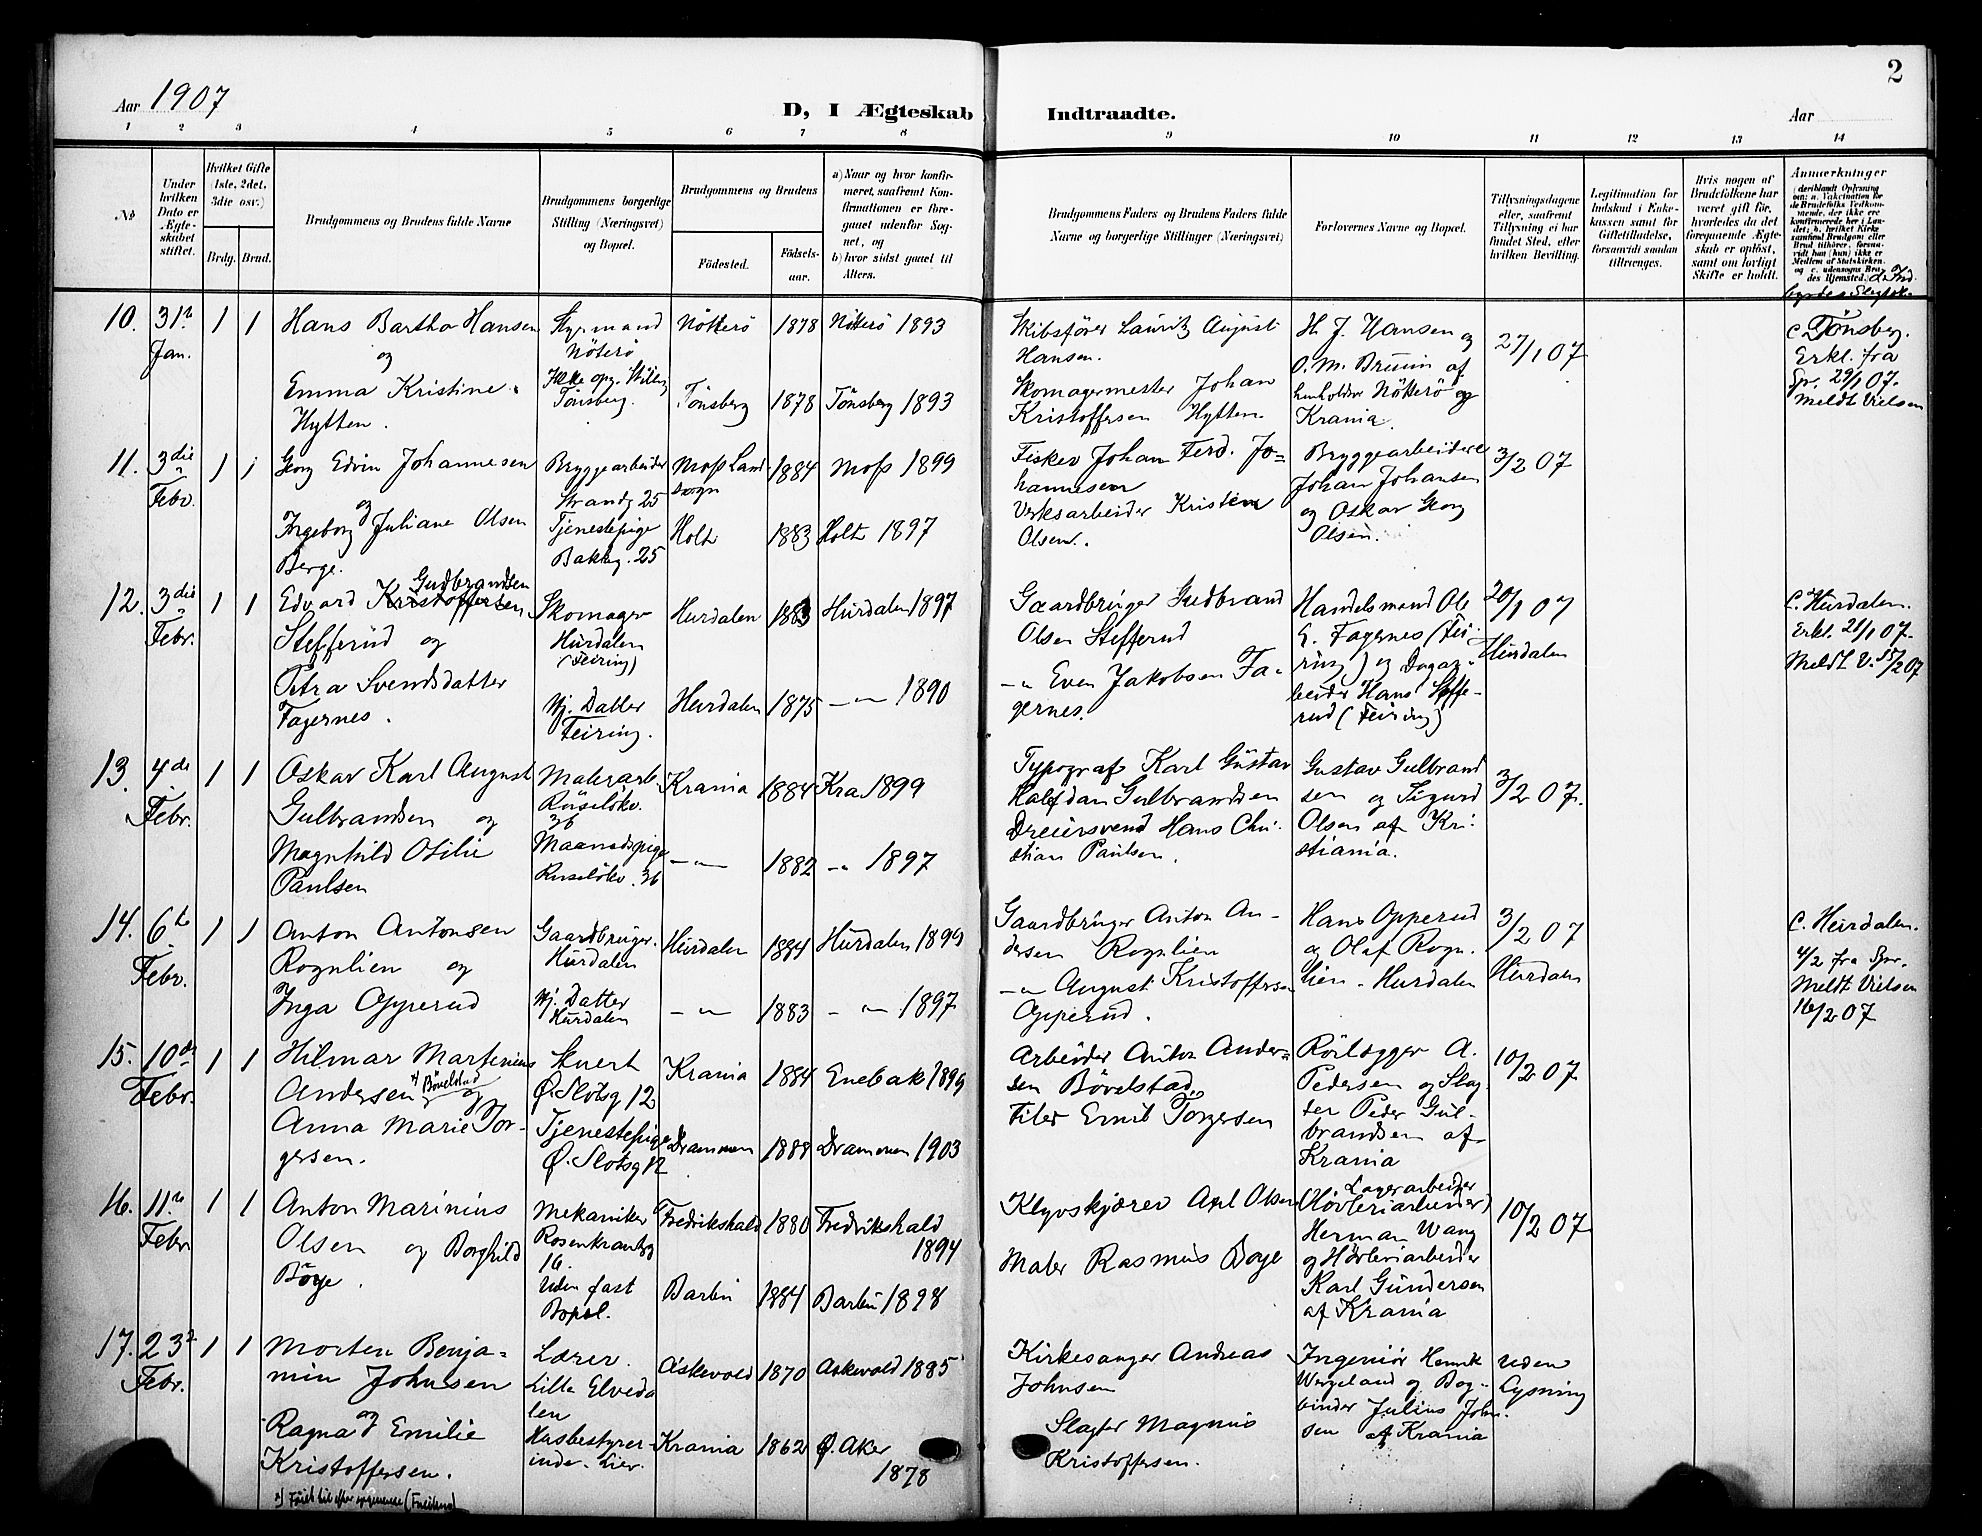 Aar 1907
D, I Ægteskab Indtraadte.
Aar
2
1 2 3 4 5 6 7 8 9 10 11 12 13 14
No
Under hvilken Dato er Ægteskabet stiftet.
Hvilket Gifte (1ste, 2det, 3die osv.)
Brdg. Brud.
Brudgommens og Brudens fulde Navne
Brudgommens borgerlige Stilling (Næringsvei) og Bopæl.
Brudgommens og Brudens
Födested.
Födselsaar.
a) Naar og hvor konfirmeret, saafremt Konfirmationen er foregaaet udenfor Sognet, og
b) hvor sidst gaaet til Alters.
Brudgommens Faders og Brudens Faders fulde Navne og borgerlige Stillinger (Næringsvei)
Forlovernes Navne og Bopæl.
Tillysningsdagene eller, saafremt Tillysning ei har fundet Sted, efter hvilken Bevilling.
Legitimation for Indskud i Enkekassen samt for Giftetilladelse, forsaavidt saadan tiltrænges.
Hvis nogen af Brudefolkene har været gift för, hvorledes da det foregaaende Ægteskab er oplöst, samt om lovligt Skifte er holdt.
Anmærkninger
10. 31te Jan. 1 1
Hans Bartho Hansen
og
Emma Kristine
Hytten.
Styrmand
Nöterö
Ikke opg. Stilling
Tönsberg.
Nötterö 1878 Nötterö 1893
Tönsberg 1878 Tönsberg 1893
Skibsförer Lauritz August
Hansen.
Skomagermester Johan
Kristoffersen Hytten.
H. J. Hansen og
O. M. Bruun af
henholdsv Nötterö og
Krania.
27/1 07
C Tönsberg.
Erkl. fra
Spr. 29/1 07.
Meldt Vielsen
11. 3die Febr. 1 1
Georg Edvin Johannesen
og
Ingeborg Juliane Olsen
Berge.
Bryggearbeider
Strandg 25
Tjenestepige
Bakkeg. 25
Moss Landsogn 1884 Moss 1899
Holt 1883 Holt 1897
Fisker Johan Ferd. Johannesen
Verksarbeider Kristen
Olsen.
Bryggearbeidere
Johan Johansen
og Oskar Georg
Olsen.
3/2 07
12. 3die Febr. 1 1
Gudbrandsen
Edvard Kristoffersen
Stefferud og
Petra Svendsdatter
Fagernes.
Skomager
Hurdalen
(Feiring)
Hj. Datter
Feiring.
Hurdalen 1883 Hurdalen 1897
Hurdalen 1875 -"- 1890
Gaardbruger Gudbrand
Olsen Stefferud
-"- Even Jakobsen Fagernes.
Handelsmand Ole
E. Fagernes (Feiring) og Dagarbeider Hans Stefferud (Feiring)
20/1 07
Hurdalen
C. Hurdalen.
Erkl. 21/1 07.
Meldt V. 15/2 07
13. 4de Febr. 1 1
Oskar Karl August
Gulbrandsen og
Magnhild Otilie
Paulsen
Malerarb.
Ruselökv.
36
Maanedspige
Ruselökv. 36
Krania 1884 Kra 1899
-"- 1882 -"- 1897
Typograf Karl Gustav
Halfdan Gulbrandsen
Dreiersvend Hans Christian Paulsen.
Gustav Gulbrandsen og Sigurd
Olsen af Kristiania.
3/2 07.
14. 6te Febr. 1 1
Anton Antonsen
Rognlien og
Inga Opperud
Gaardbruger.
Hurdalen
Hj. Datter
Hurdalen
Hurdalen 1884 Hurdalen 1899
-"- 1883 -"- 1897
Gaardbruger Anton Andersen Rognlien
-"- August Kristoffersen
Opperud.
Hans Opperud
og Olaf Rognlien - Hurdalen
3/2 07
Hurdalen
C. Hurdalen.
4/2 fra Spr.
Meldt Vielsen
16/2 07
15. 10de Febr. 1 1
Hilmar Martinius
Andersen x) Bövelstad og
Anna Marie Torgersen.
Stuert
Ø. Slotsg 12
Tjenestepige
Ø. Slotsg 12
Krania 1884 Enebak 1899
Drammen 1888 Drammen 1903
Arbeider Anton Andersen Bövelstad
Filer Emil Torgersen
Rörlægger A.
Pedersen og Slagter Peder Gulbrandsen af
Krania
10/2 07
16. 11te Febr 1 1
Anton Marinius
Olsen og Borghild
Böye.
Mekaniker
Rosenkrantzg
16.
Uden fast
Bopæl.
Fredrikshald 1880 Fredrikshald
1894
Barbu 1884 Barbu 1898
Klyvskjærer Axl Olsen
Maler Rasmus Boye
Lagerarbeider
(Høvleriarbeider)
Herman Wang
og Høvleriarbeider
Karl Gundersen
af Krania
10/2 07
17. 23de Febr. 1 1
Morten Benjamin Johnsen
og
Ragna Emilie
Kristoffersen.
Lærer.
Lille Elvedalen
Husbestyrerinde. Lier.
Askevold 1870 Askevold 1885
Krania 1862 Ø. Aker
1878
Kirkesanger Andreas
Johnsen
Slagter Magnus
Kristoffersen.
Ingeniör Henrik
Wergeland og Bogbinder Julius Johnsen af Krania
Uden
Lysning